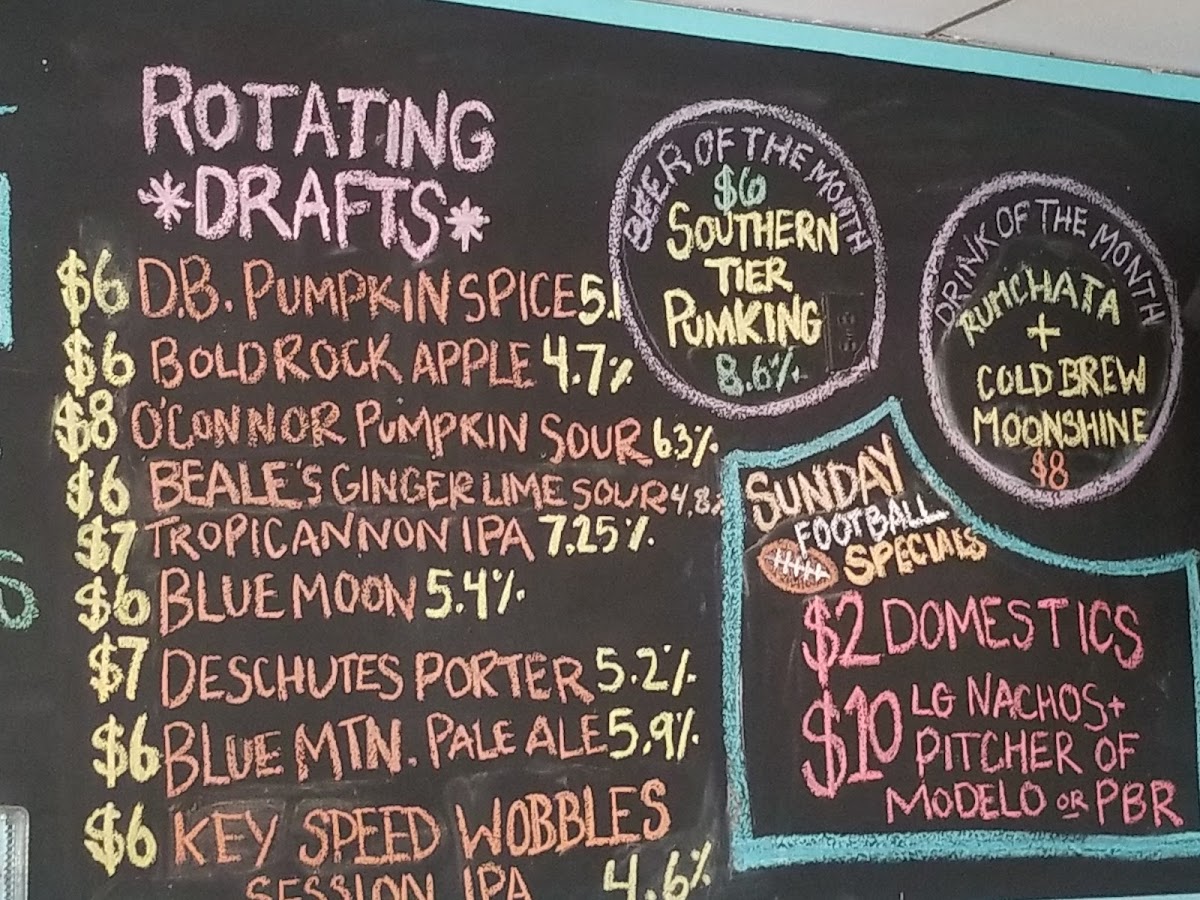 ROTATING
*DRAFTS*
$6 D.B. PUMPKIN SPICE 5.1
$6 BOLD ROCK APPLE 4.7%
$8 O'CONNOR PUMPKIN SOUR 6.3%
$6 BEALE'S GINGER LIME SOUR 4.8%
$7 TROPICANNON IPA 7.25%
$6 BLUE MOON 5.4%
$7 DESCHUTES PORTER 5.2%
$6 BLUE MTN. PALE ALE 5.9%
$6 KEY SPEED WOBBLES
SESSION IPA 4.6%
BEER OF THE MONTH
$6
SOUTHERN
TIER
PUMKING
8.6%
DRINK OF THE MONTH
RUMCHATA
+
COLD BREW
MOONSHINE
$8
SUNDAY
FOOTBALL
SPECIALS
$2 DOMESTICS
$10 LG NACHOS +
PITCHER OF
MODELO OR PBR